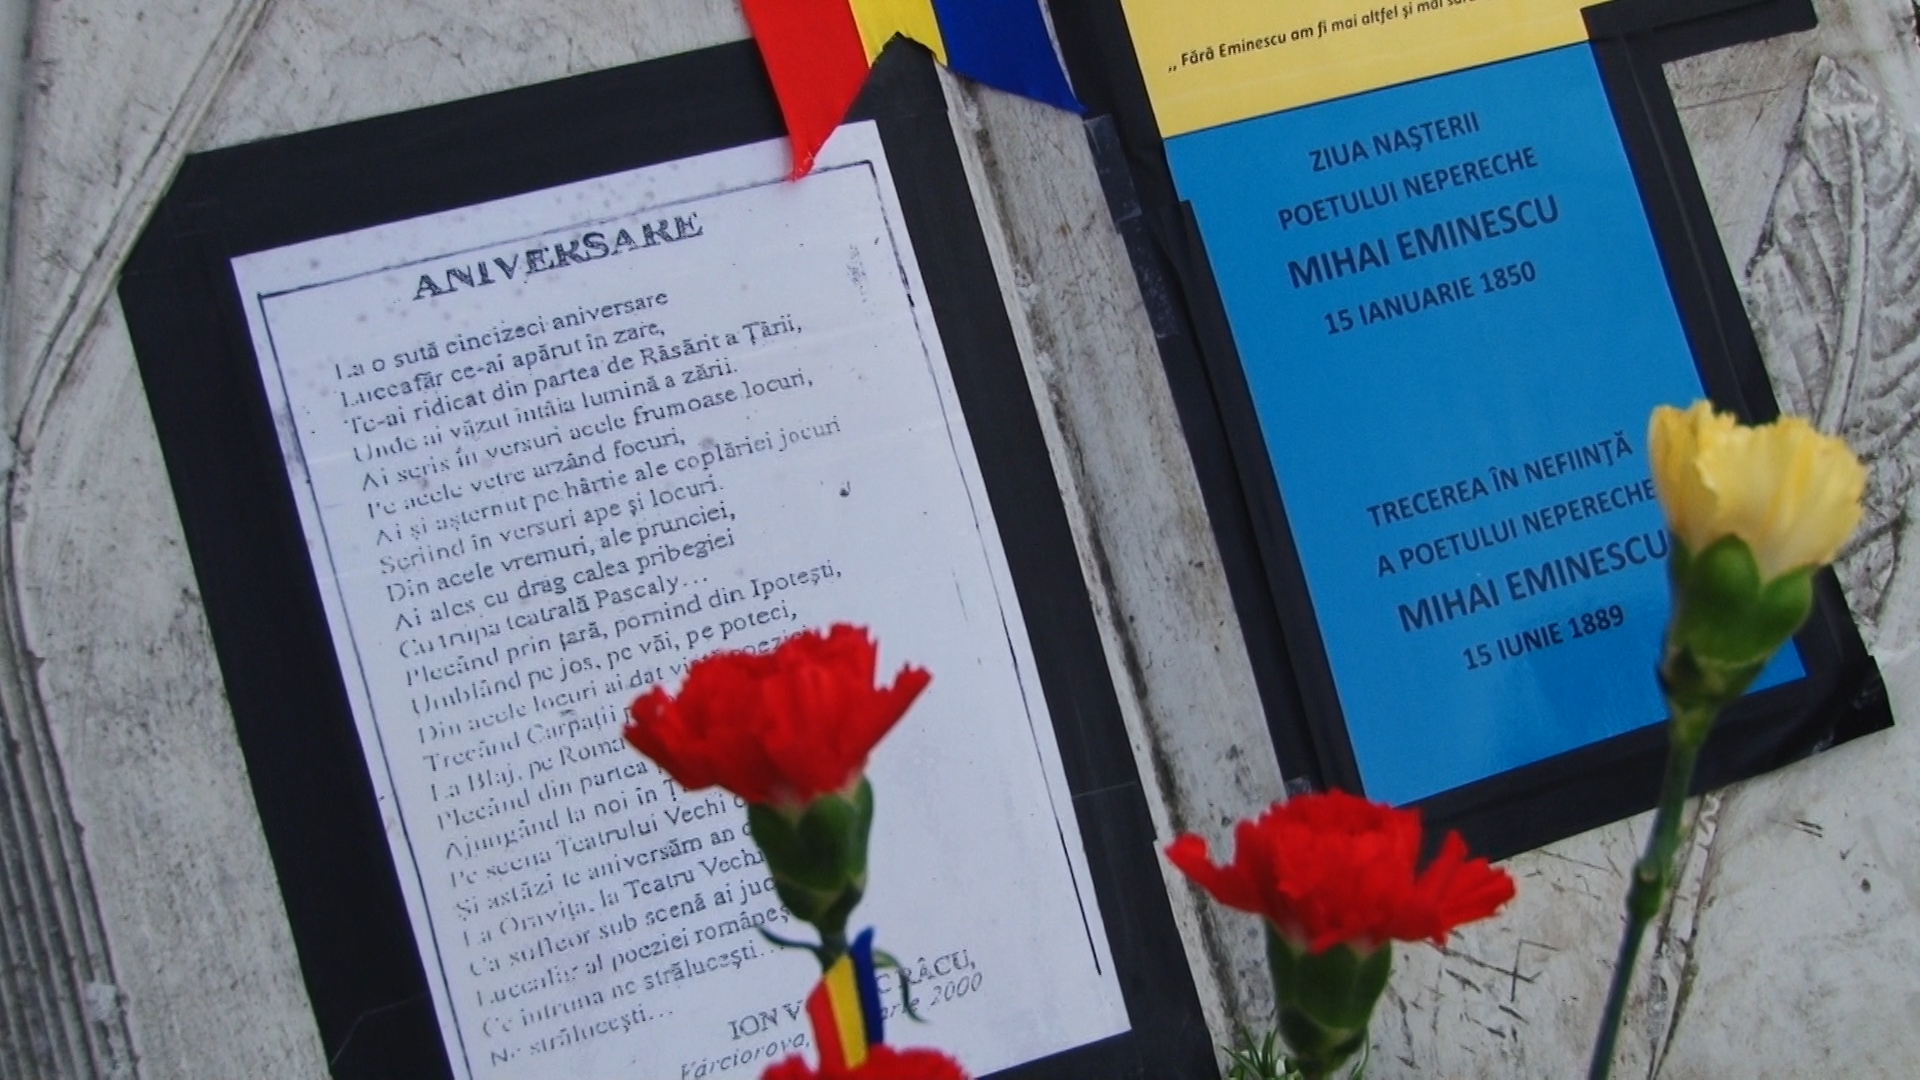 ANIVERSARE
La o sută cincizeci aniversare
Luceafăr ce-ai apărut în zare,
Te-ai ridicat din partea de Răsărit a Țării,
Unde ai văzut întâia lumină a zării.
Ai scris în versuri acele frumoase locuri,
Pe acele vetre arzând focuri,
Ai și așternut pe hârtie ale coplăriei jocuri
Scriind în versuri ape și locuri.
Din acele vremuri, ale prunciei,
Ai ales cu drag calea pribegiei
Cu trupa teatrală Pascaly...
Plecând prin țară, pornind din Ipotești,
Umblând pe jos, pe văi, pe poteci,
Din acele locuri ai dat
Trecând Carpații
La Blaj, pe
Plecând din partea
Ajungând la noi în
Pe scena Teatrului Vechi
Și astăzi te aniversăm an
La Oravița, la Teatru Vechi
Ca sufleor sub scenă ai
Luceafăr al poeziei
Ce întruna ne strălucești...
Ne strălucești...
ION
Vârciorova, 2000
„Fără Eminescu am fi mai altfel și mai
ZIUA NAȘTERII
POETULUI NEPERECHE
MIHAI EMINESCU
15 IANUARIE 1850
TRECEREA ÎN NEFIINȚĂ
A POETULUI NEPERECHE
MIHAI EMINESCU
15 IUNIE 1889